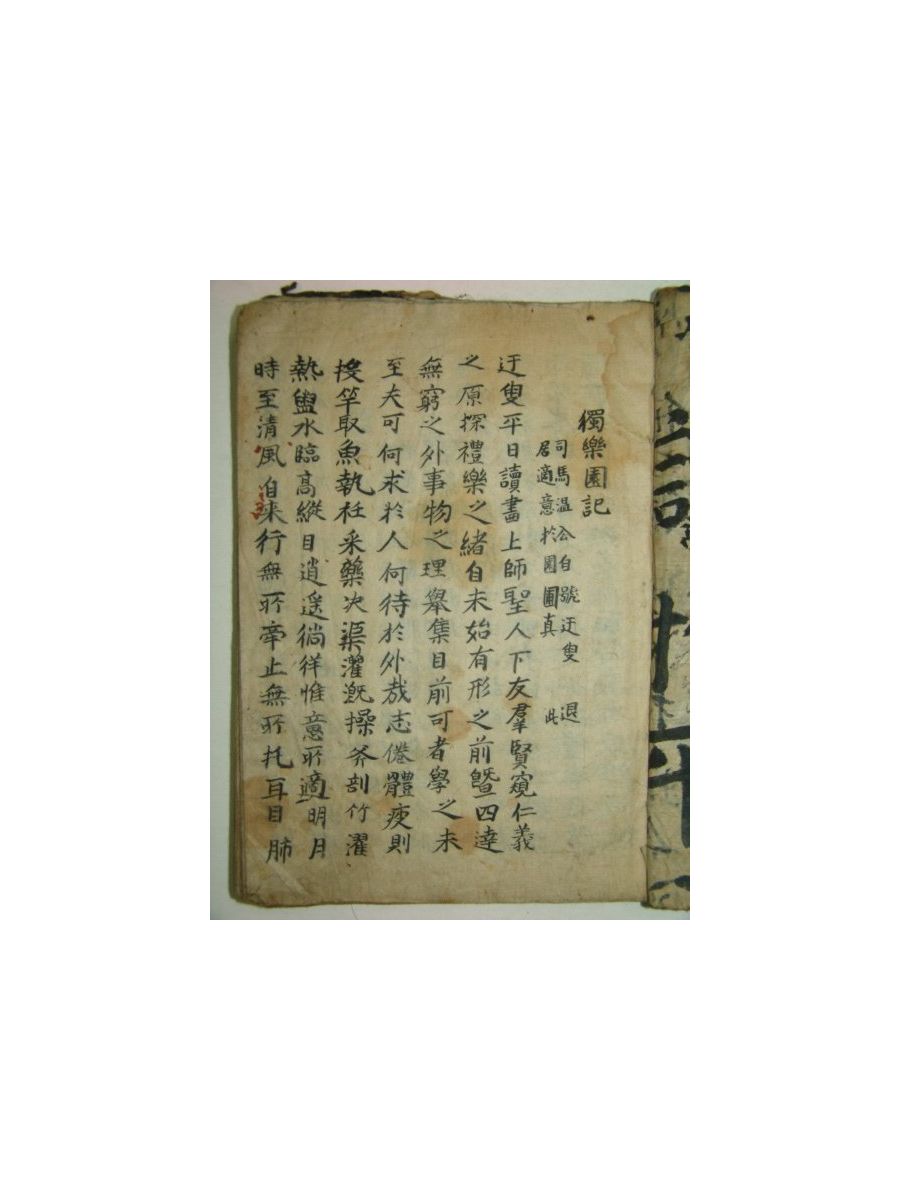 獨樂園記
司馬温公自號迂叟 退
居適意於園圃真 此
迂叟平日讀書上師聖人下友羣賢窺仁義
之原探禮樂之緒自未始有形之前曁四逹
無窮之外事物之理舉集目前可者學之未
至夫可何求於人何待於外㦲志倦體疲則
投竿取魚執衽采藥决渠濯漑操斧剖竹濯
熱盥水臨高縱目逍遥徜徉惟意所適明月
時至清風自来行無所牽止無所柅耳目肺